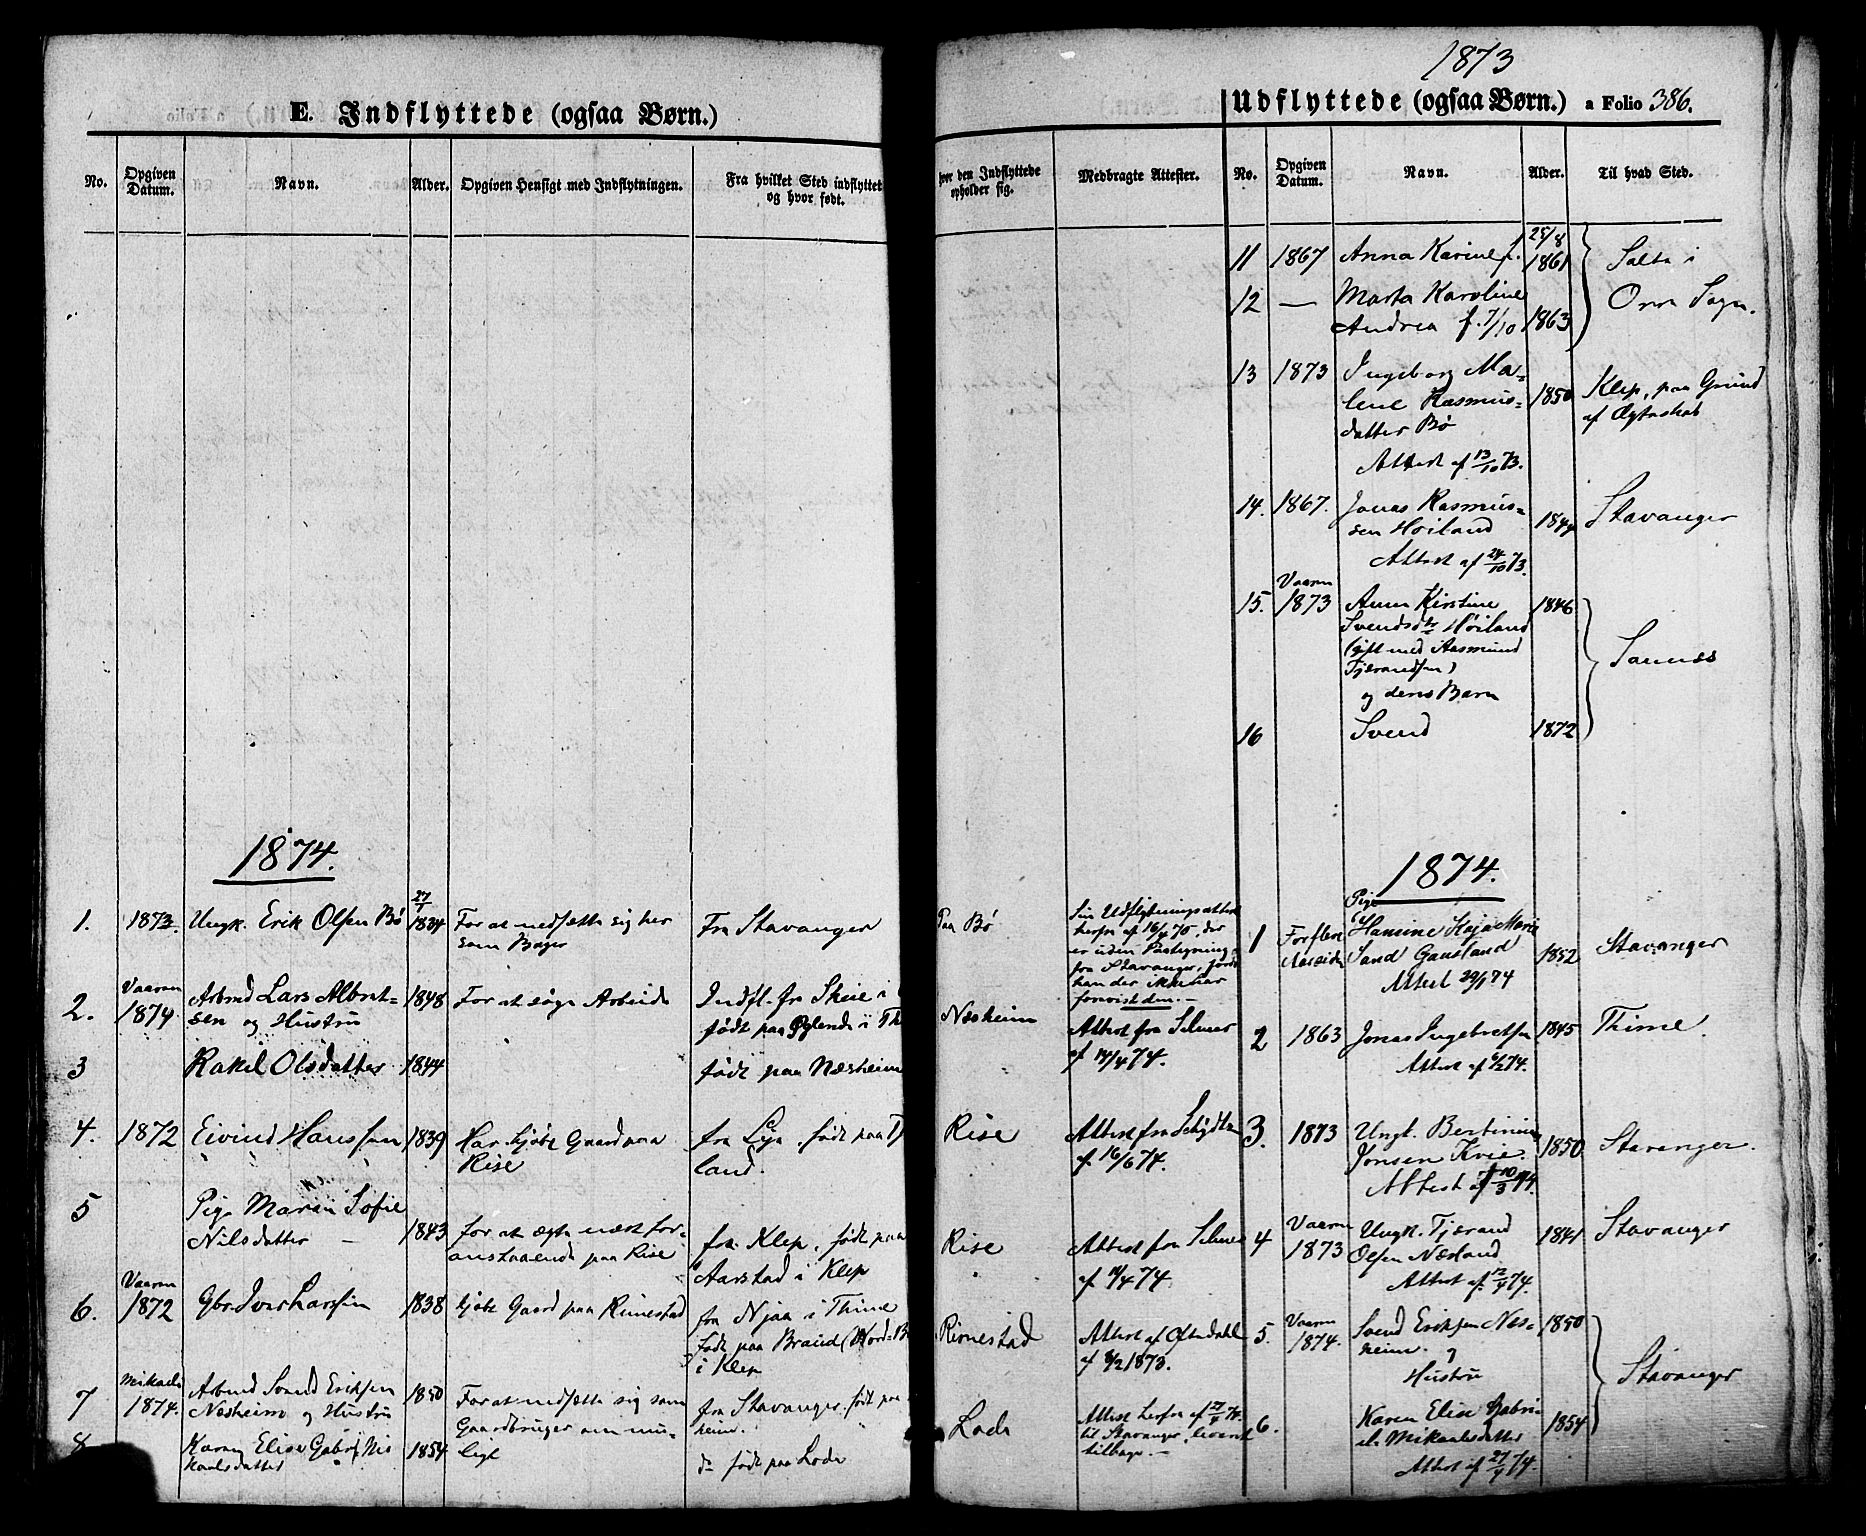 E. Indflyttede (ogsaa Børn.)
No.
Opgiven Datum.
Navn.
Alder.
Opgiven Hensigt med Indflytningen.
Fra hvilket Sted indflyttet
og hvor født.
1874.
1. 1873. Ungk. Erik Olsen Bø 27/1 1834 For at nedsætte sig her Fra Stavanger
som Bager
2. Vaaren 1874 Arbmd Lars Albret- 1848 For at søge Arbeide Indfl. fr Skeie i
sen og Hustru født paa
3 Rakel Olsdatter 1844 født paa Næsheim
4. 1872 Eivind Hansen 1839 Har kjøbt Gaard paa fra Lye. født paa
Rise land.
5 Pige Maren Sofie
Nilsdatter 1843 for at ægte næst for- fra Klep, født paa
anstaaende paa Rise Aarstad i Klep
6. Vaaren 1872 Gbr Iver Larssen 1838 kjøbt Gaard paa Rimestad fra Njaa i Thime
født paa Braud
i Klep
7 Mikaeli 1874. Arbmd Svend Eriksen 1850 For at nedsætte sig som fra Stavanger. født paa
Næsheim og Hustru Gaardbruger om mu- heim.
8 Karen Elise Gabriel Mi 1854 ligt do født paa Lode
kaelsdatter
1873
Udflyttede (ogsaa Børn.) a Folio 386.
hvor den Indflyttede
opholder sig.
Medbragte Attester.
No.
Opgiven Datum.
Navn.
Alder.
Til hvad Sted.
11 1867 Anna Karine f. 25/8 1861 Salte i
12 — Marta Karoline Orre Sogn.
Andrea f. 7/10 1863
13 1873 Ingeborg Ma-
lene Rasmus- 1850 Klep, paa Grund
datter Bø af Ægteskab
Attest af 13/10 73.
14. 1867. Jonas Rasmus- Stavanger
sen Høiland 1844
Attest af 24/10 73.
15. Vaaren 1873 Anna Kirstine 1846
Svendsdtr Høiland
(gift med Aasmund Sannes
Tjerandsen)
og deres Barn
16 Svend 1872
1874.
Paa Bø
Sin Udflytningsattest
herfra af 16/4 70, der
er uden Paategning
fra Stavanger,
han der ikke har
forevist den. —
1 For flere Aar siden Pige
Hansine Kaja Marie
Sand Gausland 1852 Stavanger
Attest 29/1 74
Næsheim Attest fra Selmer
af 14/4 74.
2 1863 Jonas Ingebretsen 1845 Thime
Attest af 4/2 74.
Rise Attest fra
af 16/6 74.
3. 1873 Ungk. Bertinius
Jonsen Kvie. 1850 Stavanger.
Attest af 10/3 74.
Rise Attest fra Selmer
af 14/4 74
4 Vaaren 1873 Ungk. Tjerand 1841 Stavanger
Olsen Næsland
Attest af 12/4 74.
Rimestad Attest af Oftedahl
af 8/2 1873.
5. Vaaren 1874. Svend Eriksen Næs- 1850
heim. og
Hustru Stavanger
Lode Attest herfra af 27/4 74.
til Stavanger, leveret
tilbage. —
6. Karen Elise Gabri- 1854
el Mikaelsdatter
Attest af 27/4 74.